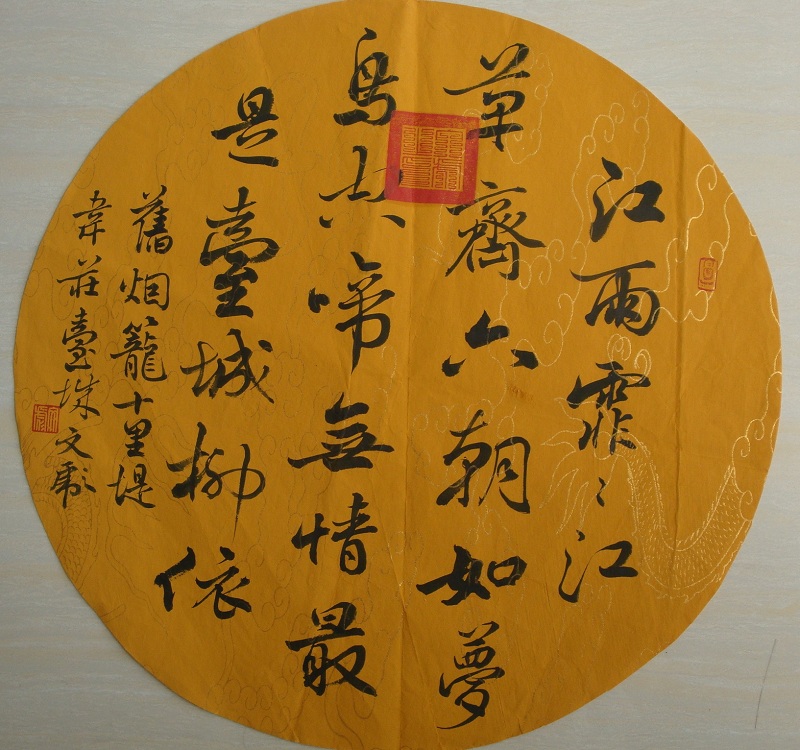 江雨霏〻江
草齊六朝如夢
鳥空啼無情最
是臺城柳依
舊烟籠十里堤
韋莊臺城文彪